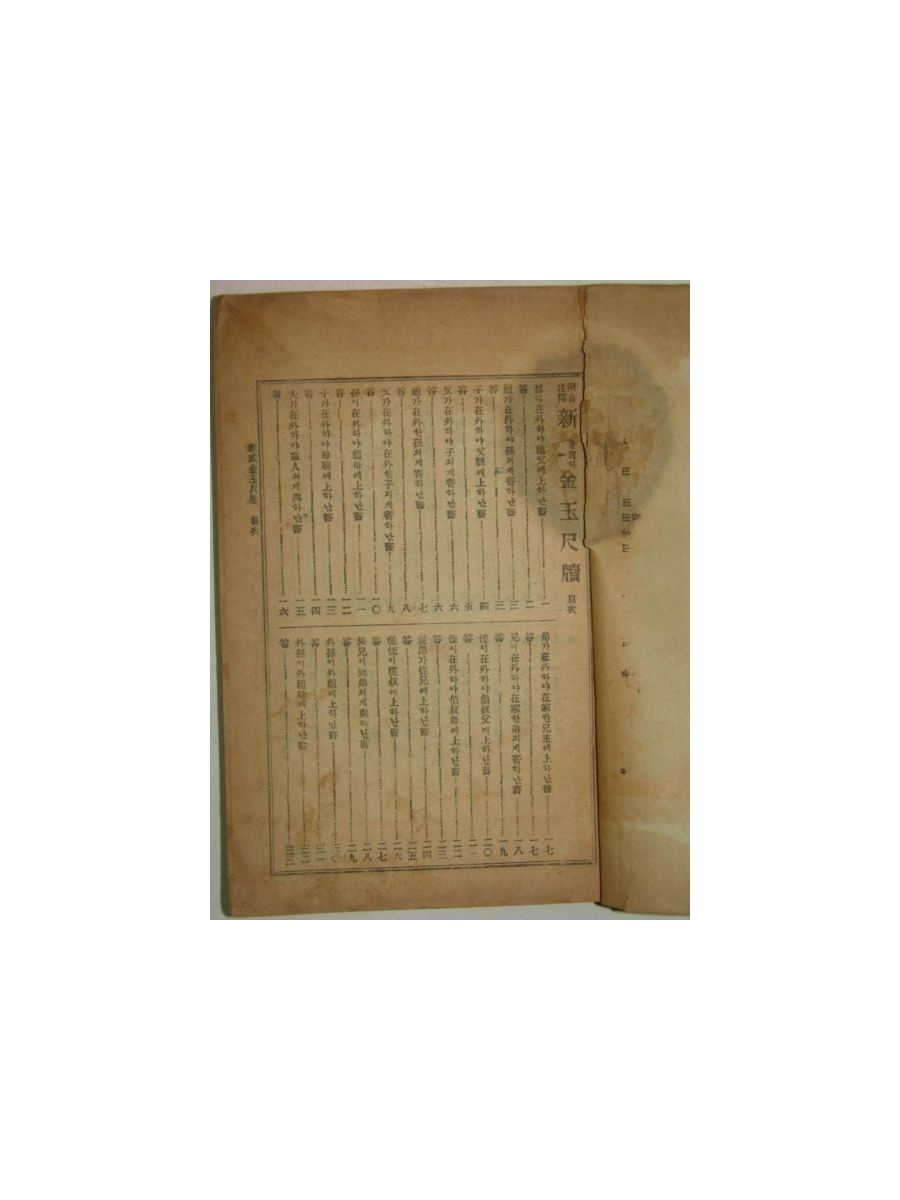 附音
註釋
新 金玉尺牘 目次
孫이在外하야祖父에上하난書 一
答 二
祖가在外하야孫의게寄하난書 三
答 三
子가在外하야父親에上하난書 四
答 五
父가在外하야子의게寄하난書 六
答 六
祖가在外한孫의게寄하난書 七
答 八
父가在外하야在外한子의게寄하난書 九
答 一〇
孫이在外하야祖母에上하난書 一一
答 一二
子가在外하야母親에上하난書 一三
答 一四
夫가在外하야 人의게與하난書 一五
答 一六
弟가在外하야在家한兄主에上하난書 一七
答 一七
兄이在外하야在家한弟의게寄하난書 一八
答 一九
侄이在外하야伯叔父에上하난書 二〇
答 二一
侄이在外하야伯叔母에上하난書 二二
答 二三
從弟가從兄에上하난書 二四
答 二五
從侄이從叔에上하난書 二六
答 二七
族兄이族弟의게與하난書 二八
答 二九
外孫이外祖에上하난書 三〇
答 三一
外孫이外祖母에上하난書 三二
答 三三
新式金玉尺牘 目次